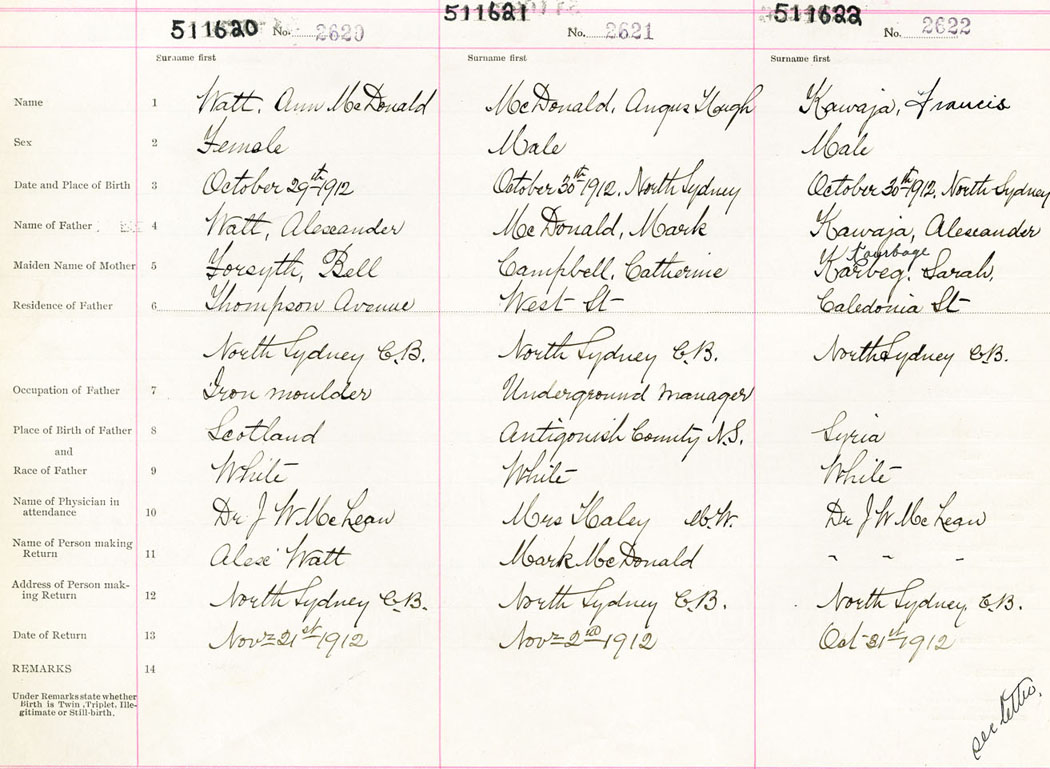 511620 No. 2620 511621 No. 2621 511622 No. 2622
Surname first Surname first Surname first
Name 1 Watt, Ann McDonald McDonald, Angus Hough Kawaja, Francis
Sex 2 Female Male Male
Date and Place of Birth 3 October 29th 1912 October 30th 1912. North Sydney October 30th 1912. North Sydney
Name of Father 4 Watt, Alexander McDonald, Mark Kawaja, Alexander
Kaurbage
Maiden Name of Mother 5 Forsyth, Bell Campbell, Catherine Karbeg, Sarah,
Residence of Father 6 Thompson Avenue West St Caledonia St
North Sydney C.B. North Sydney C.B. North Sydney C.B.
Occupation of Father 7 Iron moulder Underground manager
Place of Birth of Father 8 Scotland Antigonish County N.S. Syria
and
Race of Father 9 White White White
Name of Physician in
attendance 10 Dr J W McLean Mrs Haley M.W. Dr J W McLean
Name of Person making
Return 11 Alex Watt Mark McDonald " " "
Address of Person mak-
ing Return 12 North Sydney C.B. North Sydney C.B. North Sydney C.B.
Date of Return 13 Novr 21st 1912 Novr 2nd 1912 Oct 31st 1912
REMARKS 14
Under Remarks state whether
Birth is Twin, Triplet, Ille-
gitimate or Still-birth.
see letter.